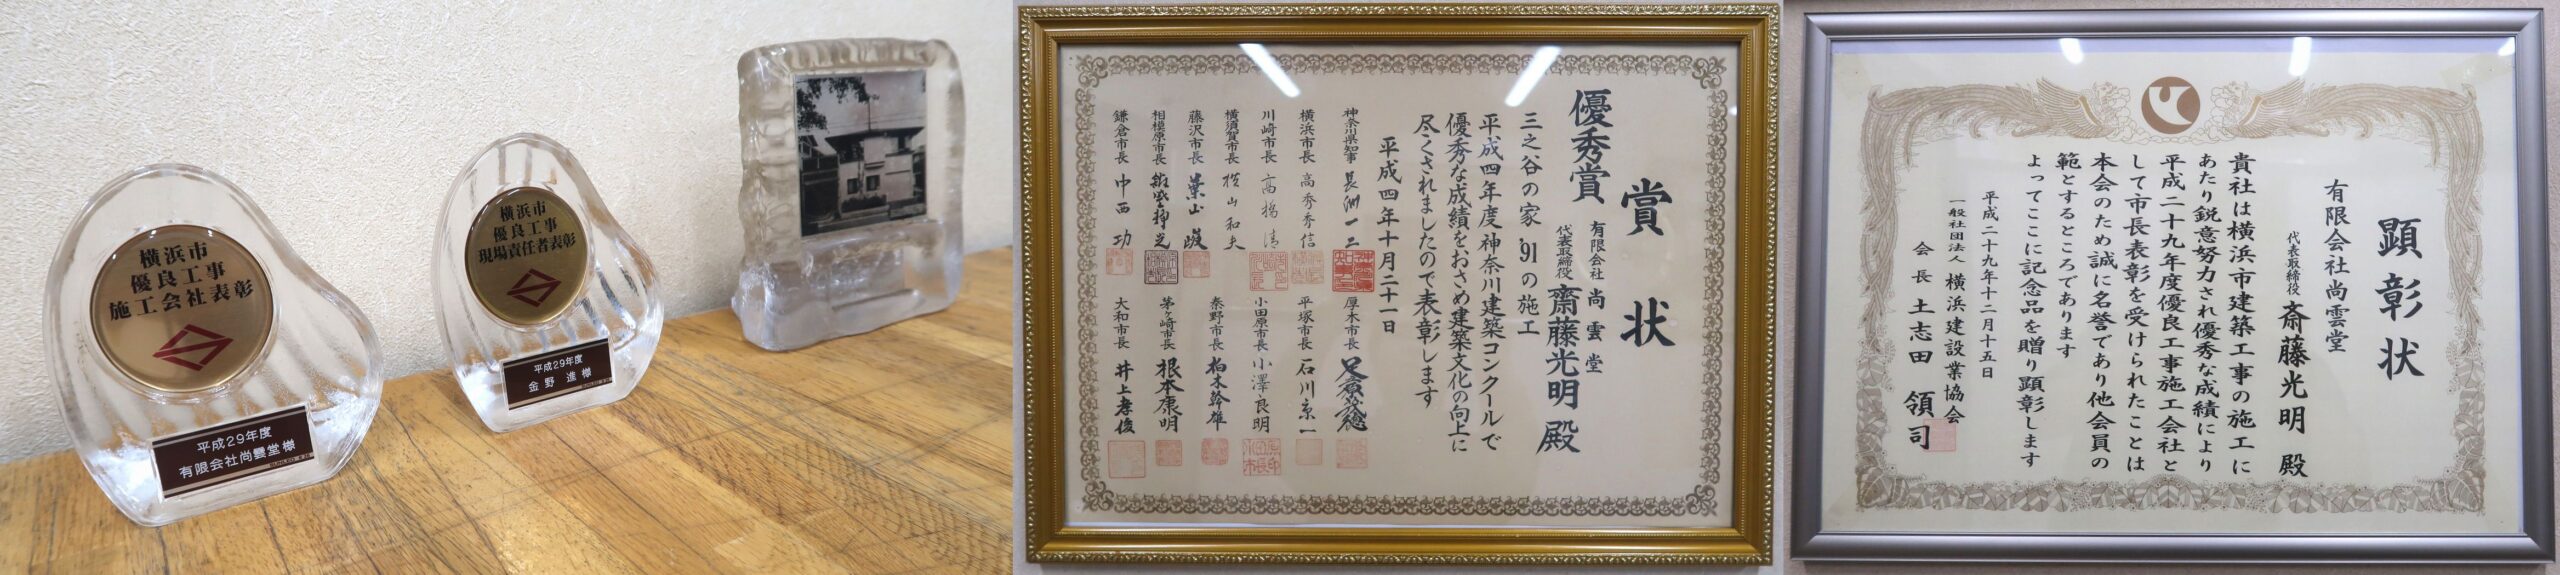 横浜市
優良工事
施工会社表彰
平成29年度
有限会社尚雲堂様
横浜市
優良工事
現場責任者表彰
平成29年度
金野 進 様
賞状
優秀賞
有限会社 尚雲堂
代表取締役 齋藤光明 殿
三之谷の家'91の施工
平成四年度神奈川建築コンクールで
優秀な成績をおさめ建築文化の向上に
尽くされましたので表彰します
平成四年十月二十一日
神奈川県知事 長洲一二
横浜市長 高秀秀信
川崎市長 高橋清
横須賀市長 横山和夫
藤沢市長 葉山峻
相模原市長
鎌倉市長 中西功
厚木市長 足立原茂徳
平塚市長 石川京一
小田原市長 小澤良明
秦野市長 柏木幹雄
茅ヶ崎市長 根本康明
大和市長 井上孝俊
顕彰状
有限会社尚雲堂
代表取締役 斎藤光明 殿
貴社は横浜市建築工事の施工に
あたり鋭意努力され優秀な成績により
平成二十九年度優良工事施工会社と
して市長表彰を受けられたことは
本会のため誠に名誉であり他会員の
範とするところであります
よってここに記念品を贈り顕彰します
平成二十九年十二月十五日
一般社団法人 横浜建設業協会
会長 土志田 領司